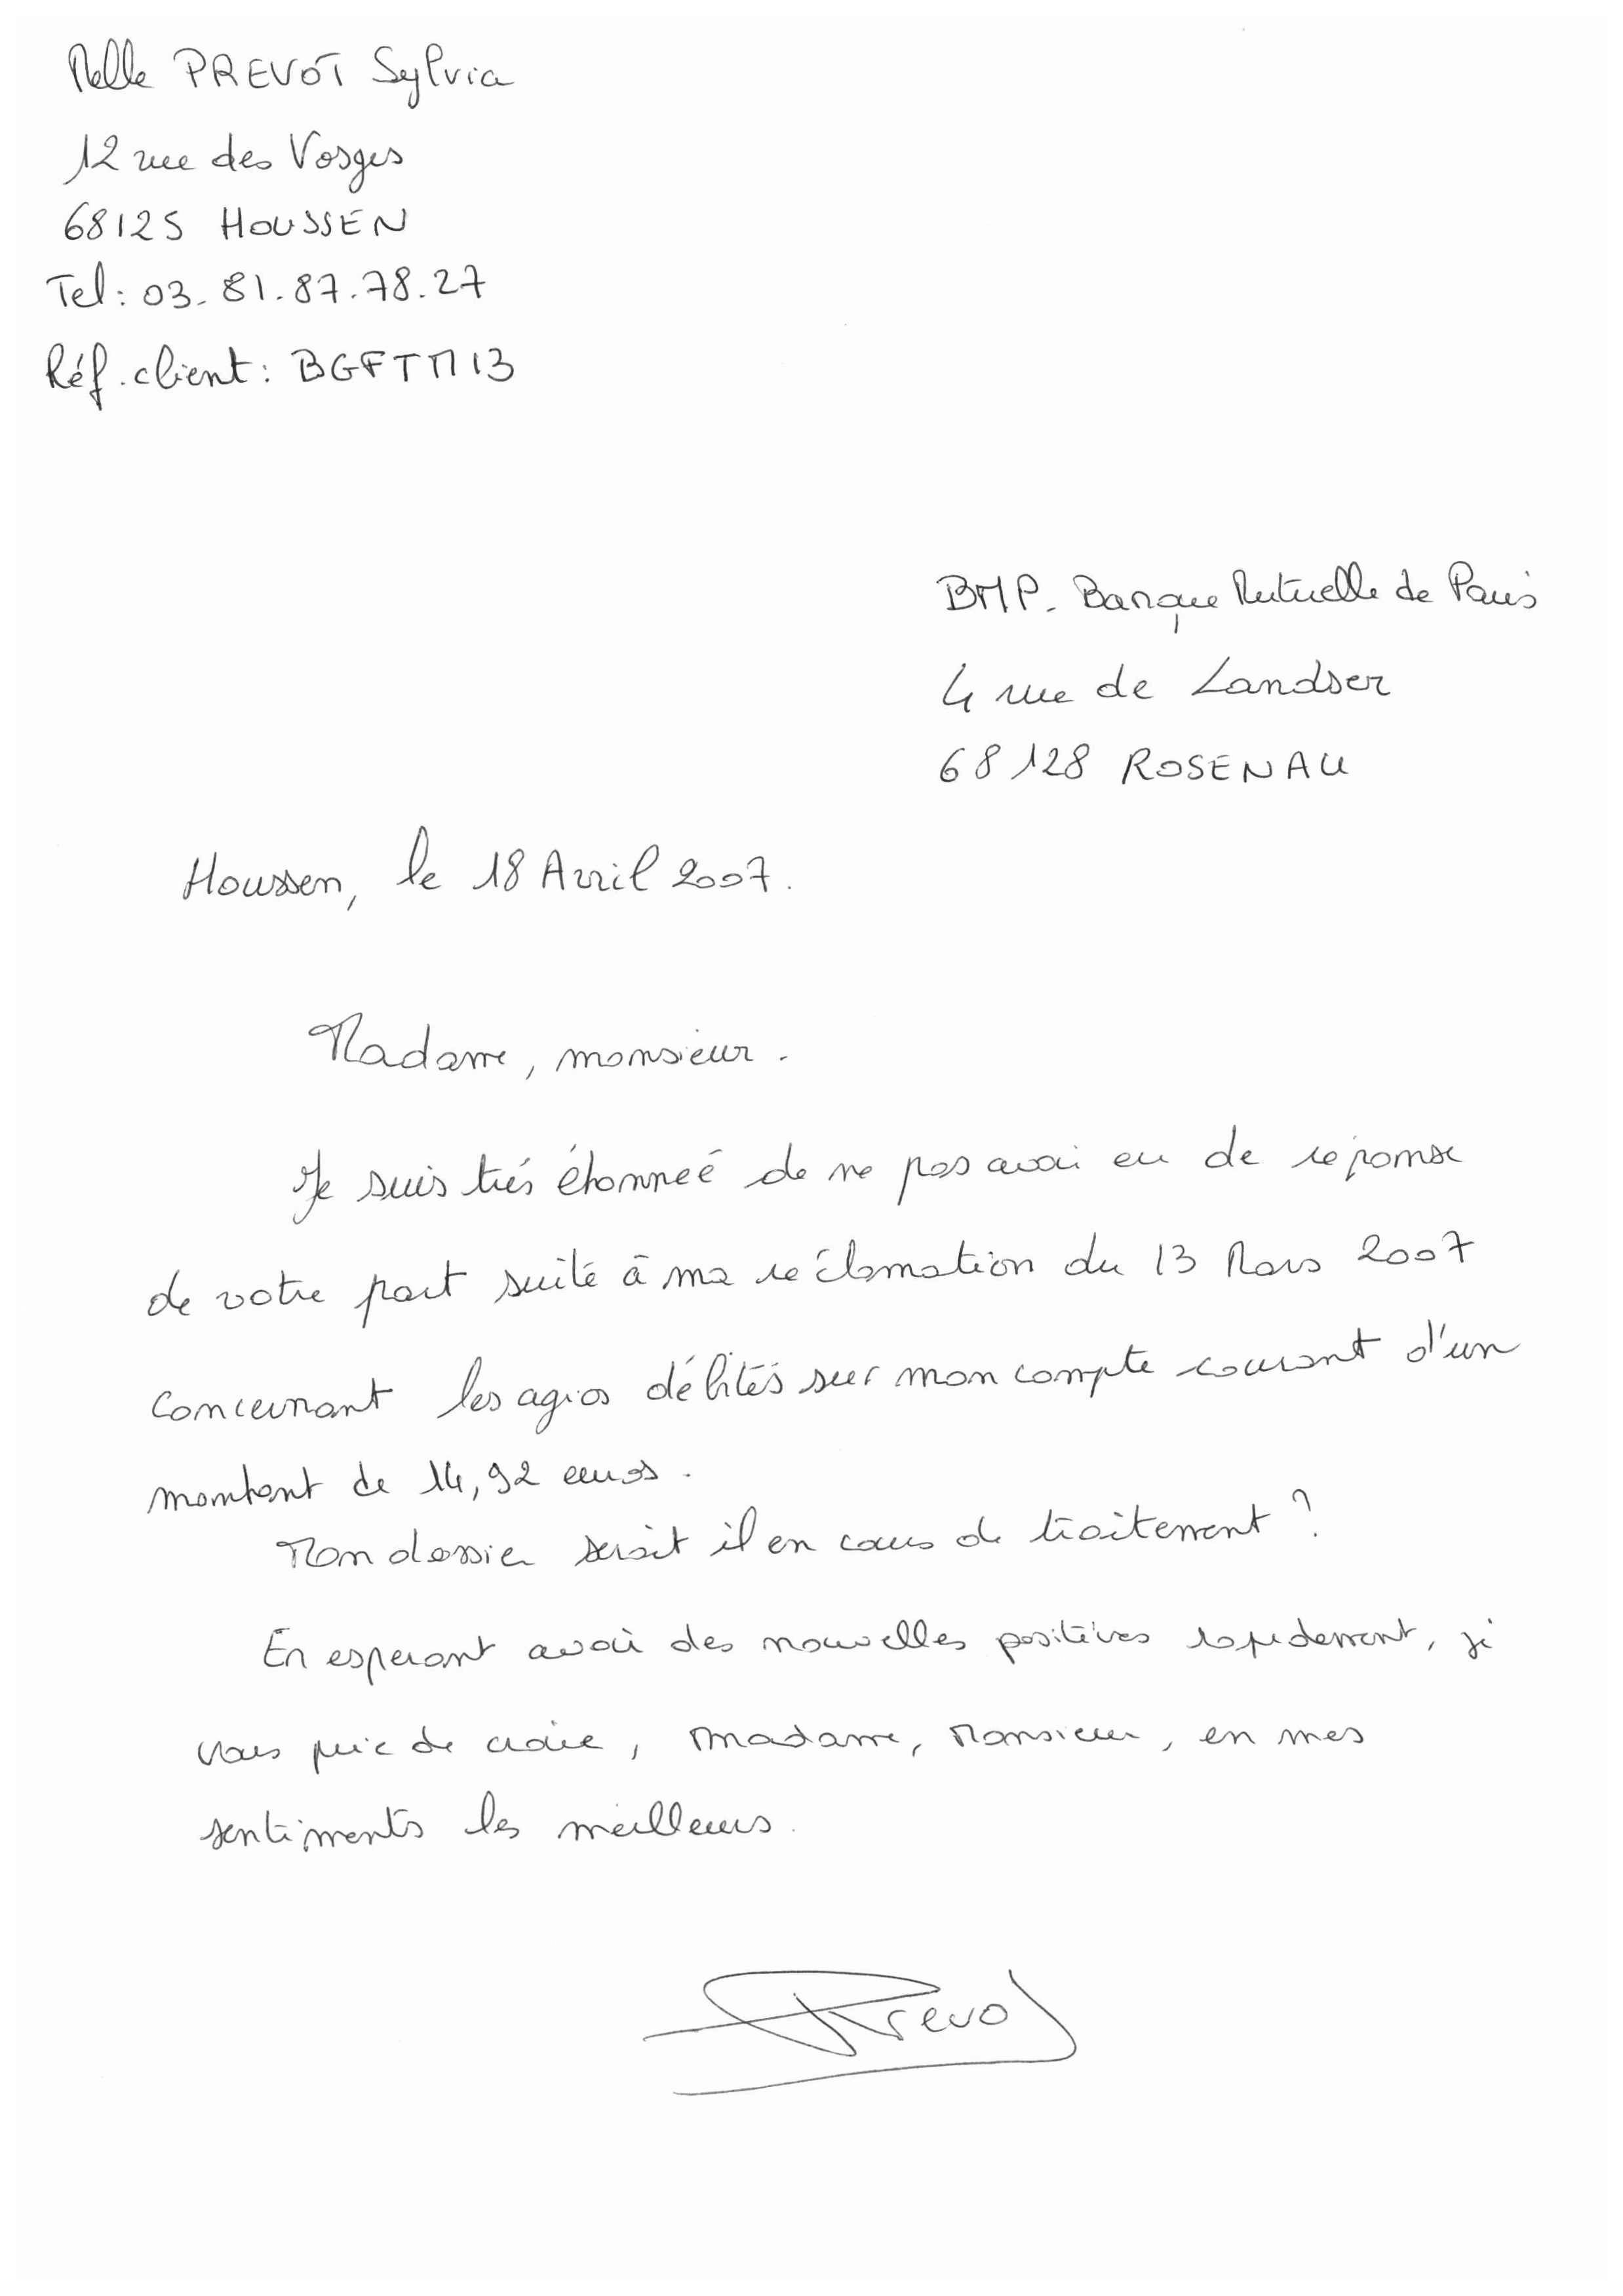 Melle PREVOT Sylvia
12 rue des Vosges
68125 HOUSSEN
Tel: 03.81.87.78.27
Réf.client: BGFTM13
BMP. Banque Mutuelle de Paris
4 rue de Landser
68128 ROSENAU
Houssen, le 18 Avril 2007.
Madame, monsieur.
Je suis très étonneé de ne pas avoir eu de reponse
de votre part suite à ma réclamation du 13 Mars 2007
concernant les agios débités sur mon compte courant d'un
montant de 14,92 euros.
Mon dossier serait il en cours de traitement ?
En esperant avoir des nouvelles positives rapidement, je
vous prie de croire, Madame, Monsieur, en mes
sentiments les meilleurs.
Prevot